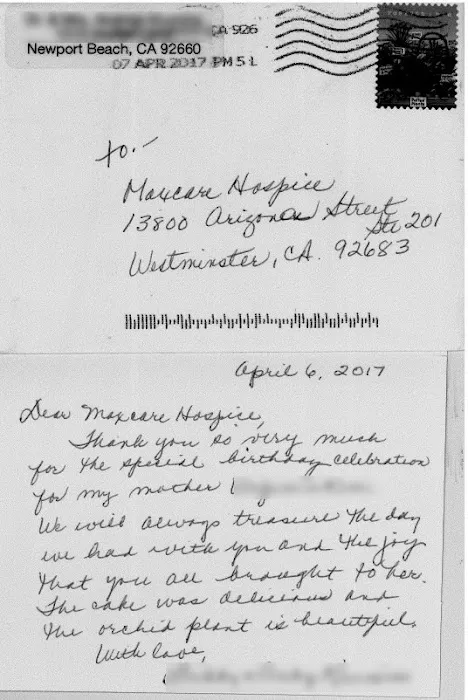 CA 926
Newport Beach, CA 92660
07 APR 2017 PM 5 L
to:-
Maxcare Hospice
13800 Arizona Street
Ste 201
Westminster, CA. 92683
April 6, 2017
Dear Maxcare Hospice,
Thank you so very much
for the special birthday celebration
for my mother
We will always treasure the day
we had with you and the joy
that you all brought to her.
The cake was delicious and
the orchid plant is beautiful.
With love,